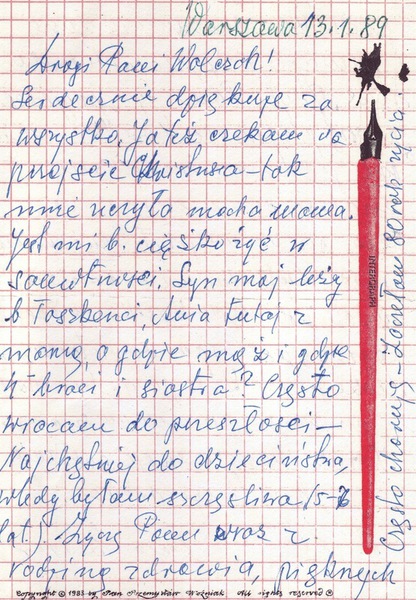 Warszawa 13.1.89
Drogi Panie Walczak!
Serdecznie dziękuję za
wszystko. Ja też czekam na
przyjście Chrystusa – tak
mnie uczyła moja mama.
Jest mi b. ciężko żyć w
samotności. Syn mój leży
b Taszkenci, Ania tutaj z
mamą, a gdzie mąż i gdzie
4 braci i siostra? Często
wracam do przeszłości –
Najchętniej do dzieciństwa,
wtedy byłam szczęśliwa (5-6
lat). Życzę Panu wraz z
rodziną zdrowia, pięknych
Często choruję – Zaczęłam 80 rok życia!
INTERGRAPH
Copyright © 1983 by Jan Przemysław Woźniak All rights reserved ®